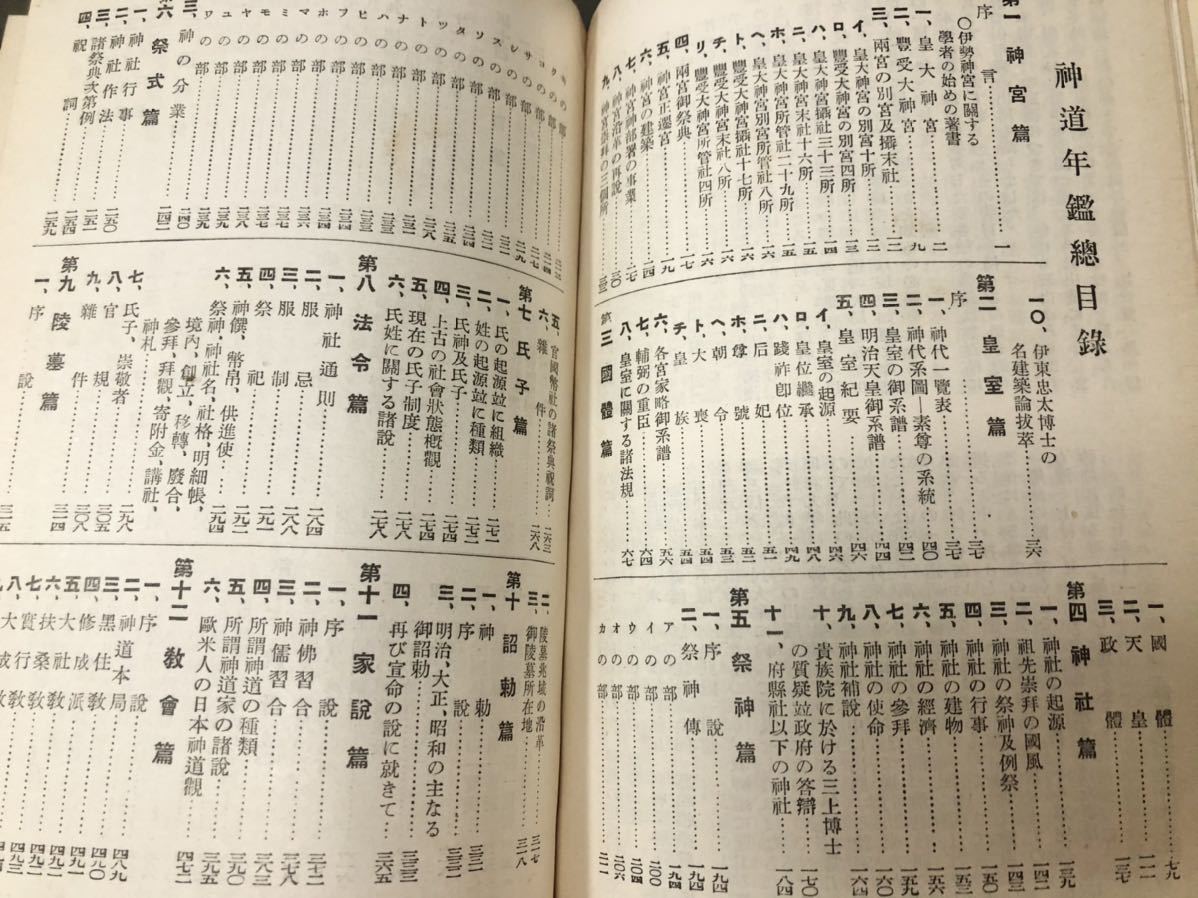 神道年鑑總目錄
第一 神宮篇
序言……一
〇伊勢神宮に關する
學者の始めの著書
一、皇大神宮……二
二、豐受大神宮……九
三、兩宮の別宮及攝末社……一二
イ、皇大神宮の別宮十所……一二
ロ、豐受大神宮の別宮四所……一三
ハ、皇大神宮攝社三十三所……一四
ニ、皇大神宮末社十六所……一五
ホ、皇大神宮所管社二十九所……一五
ヘ、皇大神宮別宮所管社八所……一六
ト、豐受大神宮攝社十七所……一六
チ、豐受大神宮末社八所……一六
リ、豐受大神宮所管社四所……一六
四、兩宮御祭典……一七
五、神宮正遷宮……一九
六、神宮の建築……二四
七、神宮神部署の事業……二七
八、神宮沿革の再說……三〇
九、神宮崇拜の三個所
一〇、伊東忠太博士の
名建築論拔萃……三六
第二 皇室篇
序……三七
一、神代一覽表……三七
二、神代系圖―素尊の系統……四〇
三、皇室の御系譜……四二
四、明治天皇御系譜……四四
五、皇室紀要……四六
イ、皇室の起源……四六
ロ、皇位繼承……四八
ハ、踐祚卽位……四九
ニ、后妃……五一
ホ、尊號……五二
ヘ、朝令……五三
ト、大喪……五四
チ、皇族……五四
六、各宮家略御系譜……五六
七、輔弼の重臣……六四
八、皇室に關する諸法規……六七
第三 國體篇
一、國體……七九
二、天皇
三、政體……一三七
第四 神社篇
一、神社の起源……一三九
二、祖先崇拜の國風……一四二
三、神社の祭神及例祭……一四三
四、神社の行事……一五〇
五、神社の建物……一五三
六、神社の經濟……一五六
七、神社の參拜……一五九
八、神社の使命……一六〇
九、神社補說……一六四
十、貴族院に於ける三上博士
の質疑竝政府の答辯……一七〇
十一、府縣社以下の神社……一八四
第五 祭神篇
一、序說……一九四
二、祭神傳……一九四
アの部……一九四
イの部……二〇〇
ウの部……二〇四
オの部……二〇六
カの部……二一一
クの部
コの部
サの部
スの部
ソの部
タの部
ツの部
トの部
ナの部
ハの部
ヒの部
フの部
ホの部
マの部
ミの部
モの部
ヤの部
ユの部
ワの部
三、神の分業……二四〇
第六 祭式篇
一、神社行事
二、神社作法……二五〇
三、諸祭典次第例……二五一
四、祝詞……二五四
五、官國幣社の諸祭典祝詞……二六三
六、雜件……二六八
第七 氏子篇
一、氏の起源竝に組織……二七一
二、姓の起源竝に種類……二七二
三、氏神及氏子……二七三
四、上古の社會狀態概觀……二七四
五、現在の氏子制度……二七五
六、氏姓に關する諸說……二七八
第八 法令篇
一、神社通則……二八四
二、服忌……二八八
三、服制……二八八
四、祭祀……二九一
五、神饌、幣帛、供進使……二九二
六、祭神、神社名、社格、明細帳、
境內、創立、移轉、廢合、
參拜、拜觀、寄附金、講社、
神札……二九四
七、氏子、崇敬者……二九八
八、官規……三〇五
九、雜件……三〇八
第九 陵墓篇
一、序說……三一五
二、陵墓兆域の沿革……三一七
三、御陵墓所在地……三一八
第十 詔勅篇
一、神勅……三三一
二、序說……三三二
三、明治、大正、昭和の主なる
御詔勅……三三三
四、再び宣命の說に就きて……三六五
第十一 家說篇
一、序說……三七二
二、神佛習合……三七二
三、神儒習合……三七八
四、所謂神道の種類……三八三
五、所謂神道家の諸說……三九〇
六、歐米人の日本神道觀……三九五
第十二 敎會篇……四七二
一、序說
二、神道本局……四八九
三、黑住敎……四九〇
四、修成派……四九一
五、大社敎……四九二
六、扶桑敎……四九二
七、實行敎……四九三
八、大成敎